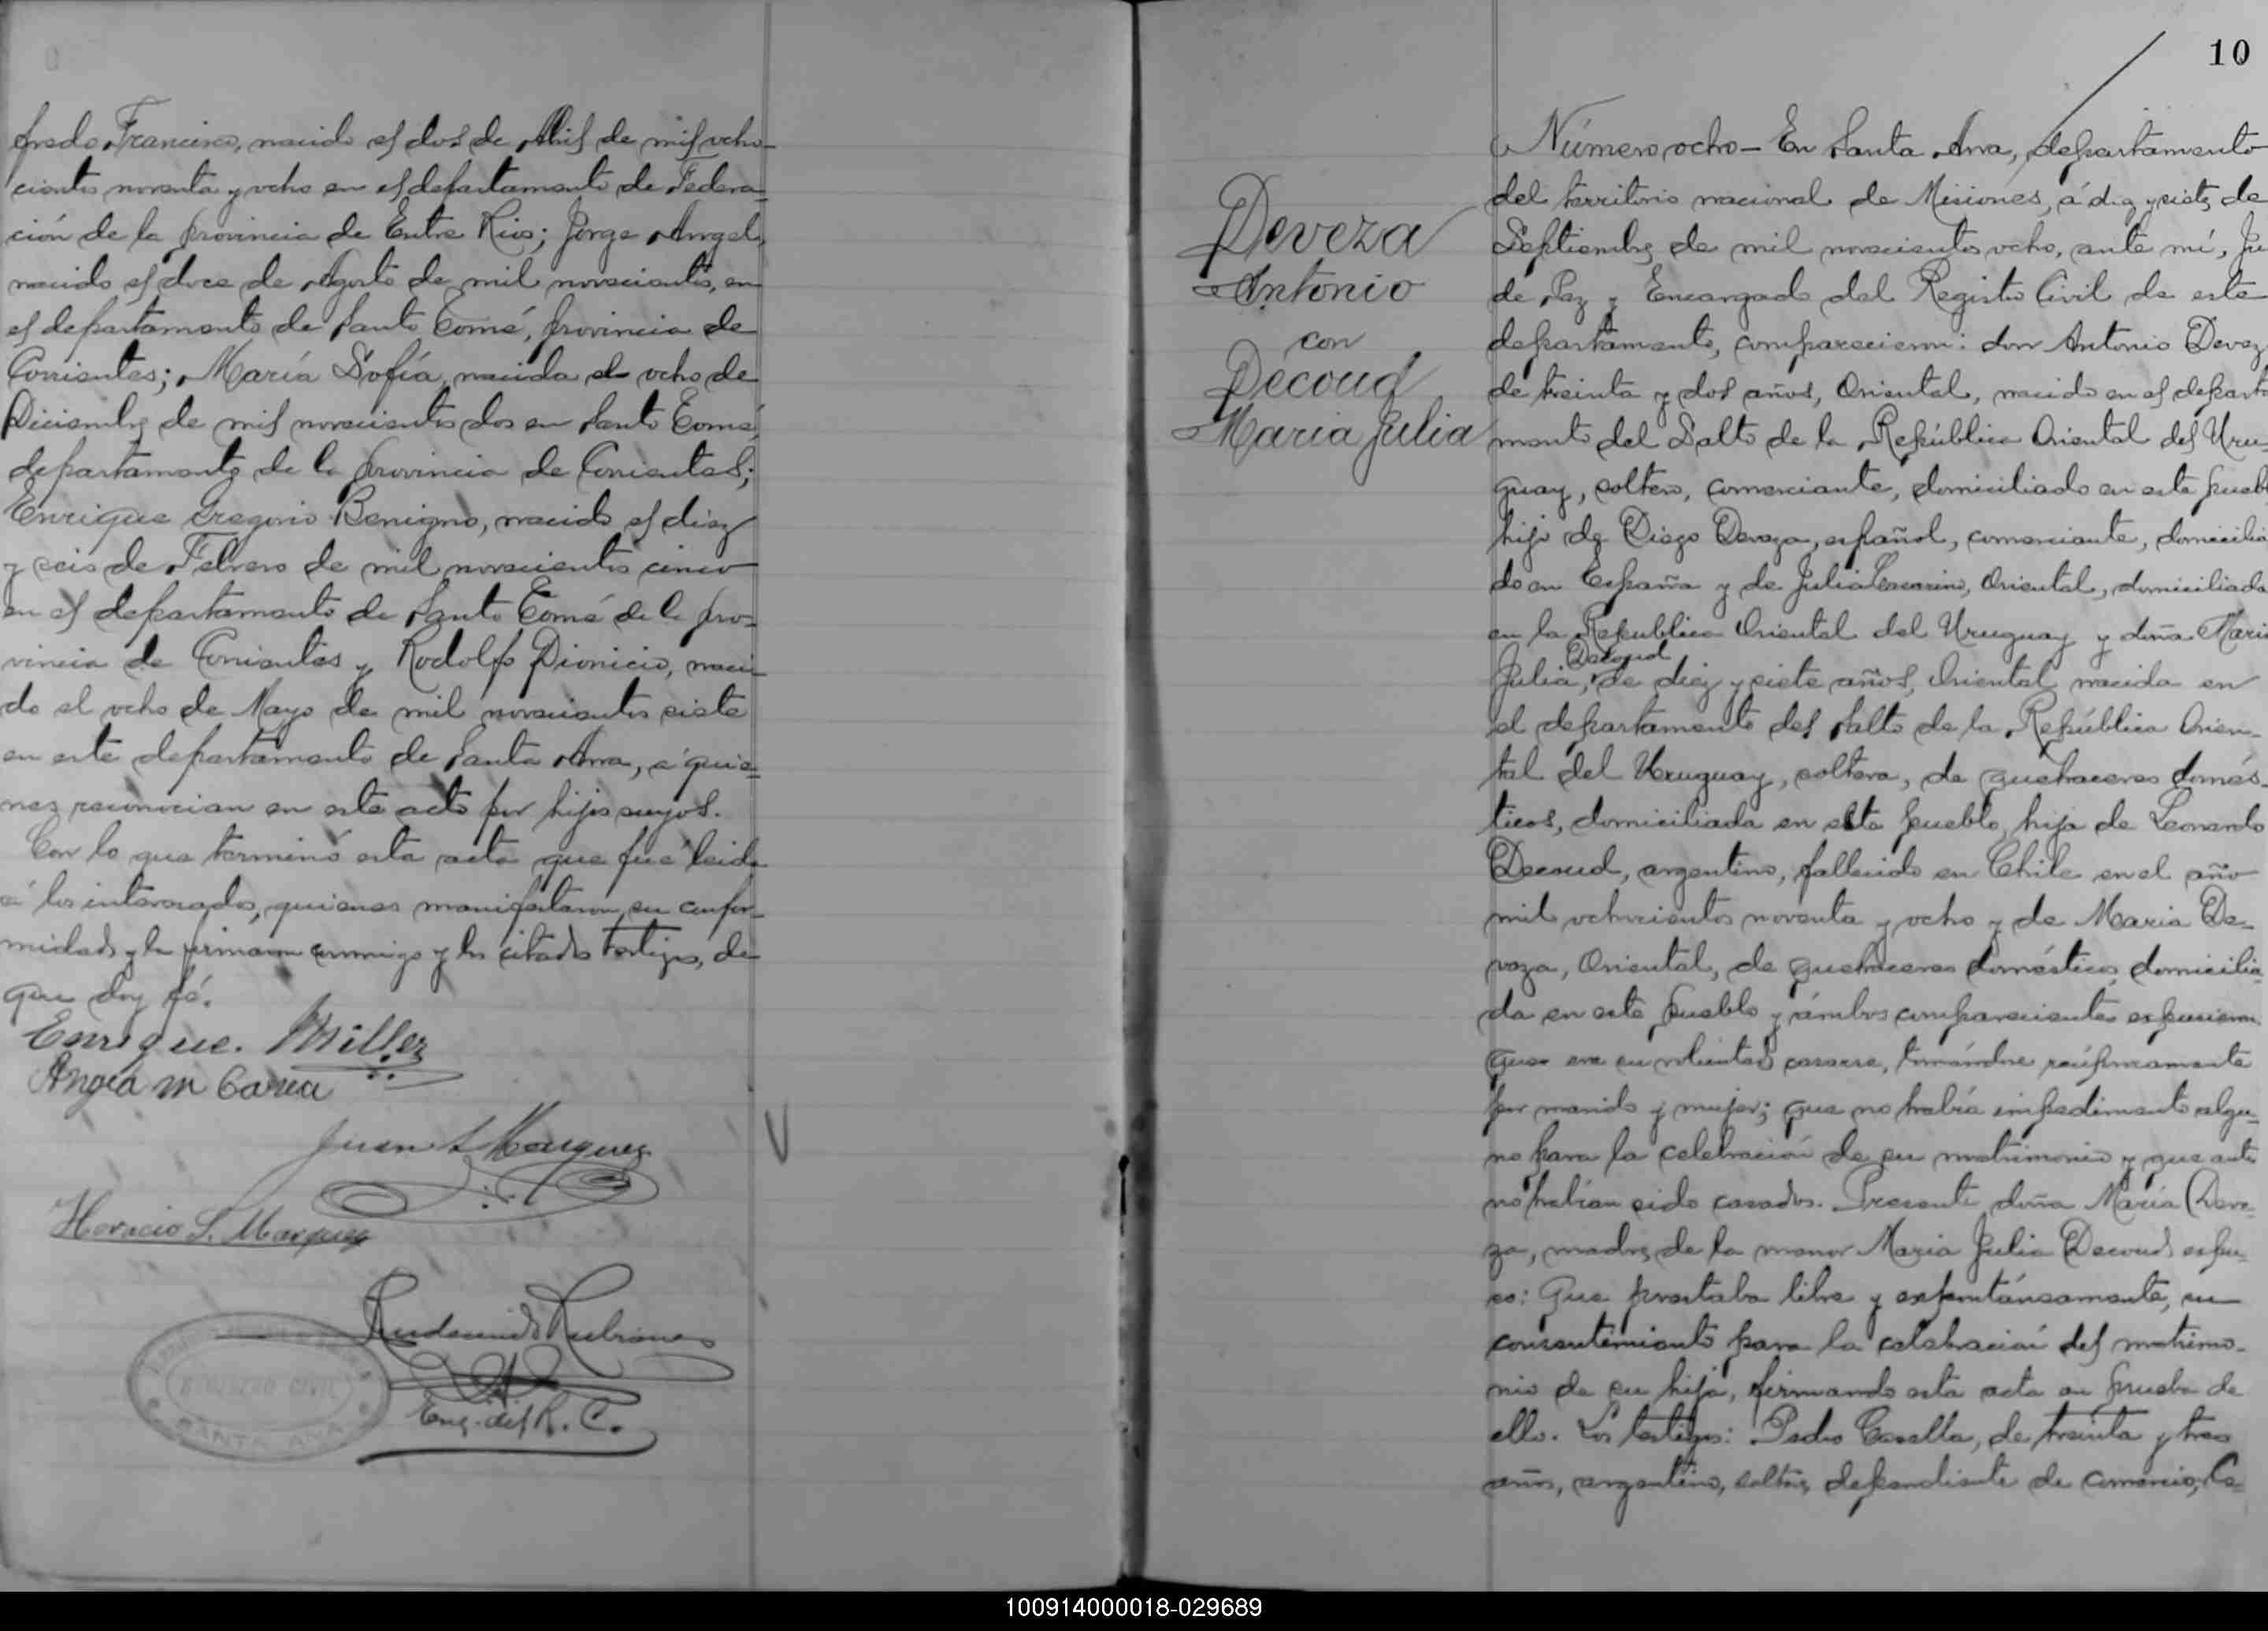 fredo Francisco, nacido el dos de Abril de mil ocho-
cientos noventa y ocho en el departamento de Federa-
ción de la provincia de Entre Rios; Jorge Angel,
nacido el doce de Agosto de mil novecientos, en
el departamento de Santo Tomé, provincia de
Corrientes; María Sofía, nacida el ocho de
Diciembre de mil novecientos dos en Santo Tomé,
departamento de la provincia de Corrientes;
Enrique Gregorio Benigno, nacido el diez
y seis de Febrero de mil novecientos cinco
en el departamento de Santo Tomé de la pro-
vincia de Corrientes y Rodolfo Dionicio, naci-
do el ocho de Mayo de mil novecientos siete
en este departamento de Santa Ana, á quie-
nes reconocian en este acto por hijos suyos.
Con lo que terminó esta acta que fué leida
á los interesados, quienes manifestaron su confor-
midad y la firmaron conmigo y los citados testigos, de
que doy fé.
Enrique. Miller
Angela M Carea
Juan S Marquez
Horacio S. Marquez
Rudecindo Rubianes
Enc. del R. C.
REGISTRO CIVIL
SANTA ANA
10
Deveza
Antonio
con
Decoud
Maria Julia
Número ocho - En Santa Ana, departamento
del territorio nacional de Misiones, á diez y siete de
Septiembre de mil novecientos ocho, ante mí, Ju
de Paz y Encargado del Registro Civil de este
departamento, comparecieron: don Antonio Devez
de treinta y dos años, Oriental, nacido en el departa
mento del Salto de la República Oriental del Uru-
guay, soltero, comerciante, domiciliado en este puebl
hijo de Diego Deveza, español, comerciante, domicilia
do en España y de Julia Oriental, domiciliada
en la Republica Oriental del Uruguay y doña Maria
Decoud
Julia, de diez y siete años, Oriental, nacida en
el departamento del Salto de la República Orien-
tal del Uruguay, soltera, de quehaceres domés-
ticos, domiciliada en este pueblo, hija de Leonardo
Decoud, argentino, fallecido en Chile en el año
mil ochocientos noventa y ocho y de Maria De-
veza, Oriental, de quehaceres domésticos, domicilia-
da en este pueblo y ámbos comparecientes expusieron
que era su voluntad casarse, tomándose recíprocamente
por marido y mujer; que no habia impedimento algu-
no para la celebración de su matrimonio y que antes
no habian sido casados. Presente doña Maria Deve-
za, madre de la menor Maria Julia Decoud expu-
so: Que prestaba libre y expontáneamente, su
consentimiento para la celebración del matrimo-
nio de su hija, firmando esta acta en prueba de
ello. Los testigos: Pedro Casella, de treinta y tres
años, argentino, soltero, dependiente de comercio, Ca-
100914000018-029689